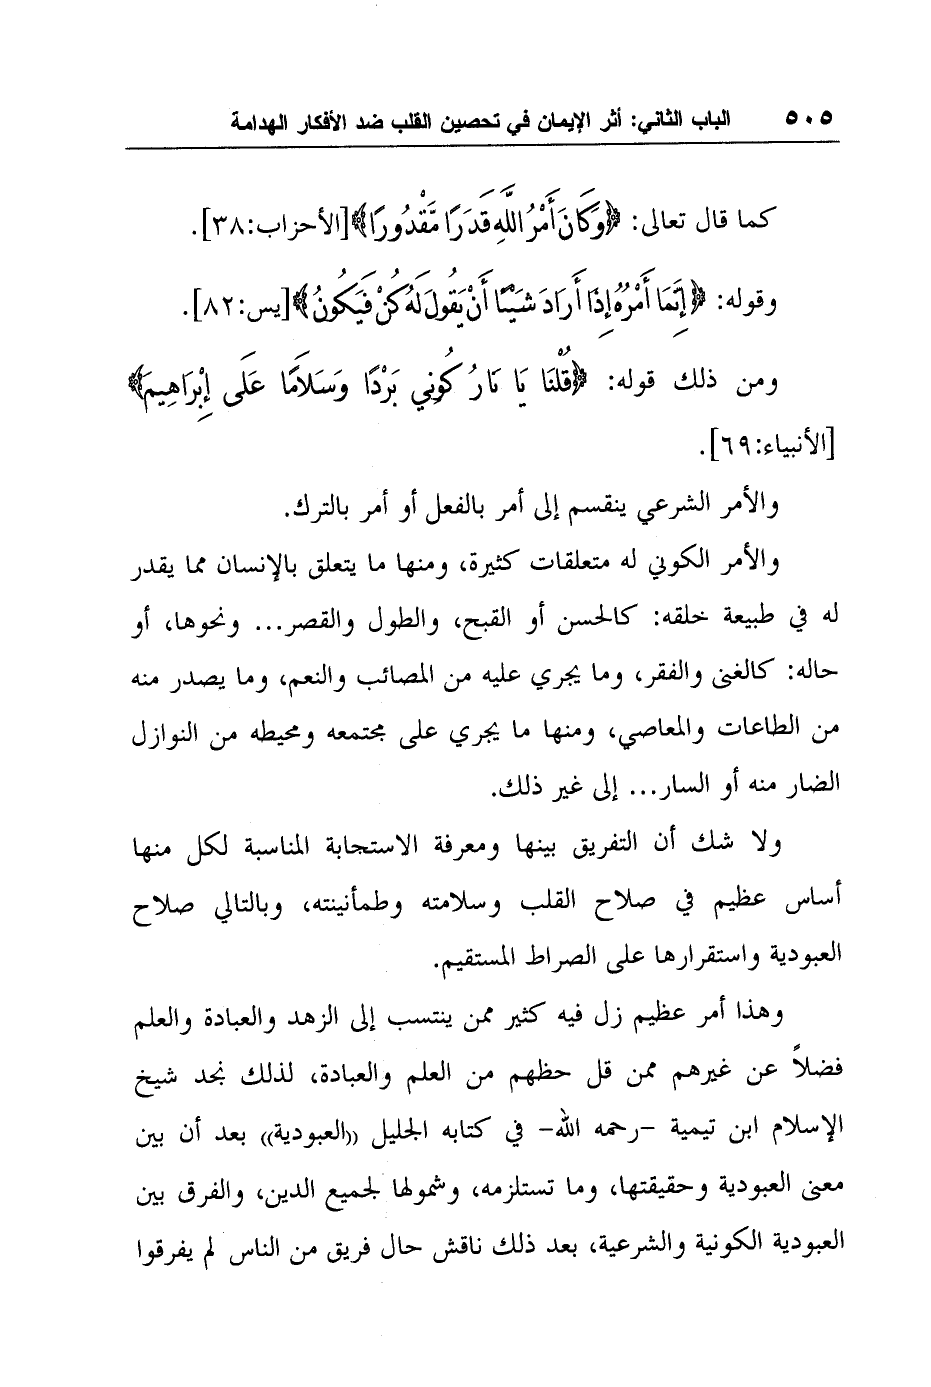 ٥٠٥ الباب الثاني: أثر الإيمان في تحصين القلب ضد الأفكار الهدامة
كما قال تعالى: ﴿وَكَانَ أَمْرُ اللَّهِ قَدَرًا مَّقْدُورًا﴾[الأحزاب:٣٨].
وقوله: ﴿إِنَّمَا أَمْرُهُ إِذَا أَرَادَ شَيْئًا أَنْ يَقُولَ لَهُ كُنْ فَيَكُونُ﴾[يس:٨٢].
ومن ذلك قوله: ﴿قُلْنَا يَا نَارُ كُونِي بَرْدًا وَسَلَامًا عَلَى إِبْرَاهِيمَ﴾
[الأنبياء:٦٩].
والأمر الشرعي ينقسم إلى أمر بالفعل أو أمر بالترك.
والأمر الكوني له متعلقات كثيرة، ومنها ما يتعلق بالإنسان مما يقدر
له في طبيعة خلقه: كالحسن أو القبح، والطول والقصر... ونحوها، أو
حاله: كالغنى والفقر، وما يجري عليه من المصائب والنعم، وما يصدر منه
من الطاعات والمعاصي، ومنها ما يجري على مجتمعه ومحيطه من النوازل
الضار منه أو السار... إلى غير ذلك.
ولا شك أن التفريق بينها ومعرفة الاستجابة المناسبة لكل منها
أساس عظيم في صلاح القلب وسلامته وطمأنينته، وبالتالي صلاح
العبودية واستقرارها على الصراط المستقيم.
وهذا أمر عظيم زل فيه كثير ممن ينتسب إلى الزهد والعبادة والعلم
فضلاً عن غيرهم ممن قل حظهم من العلم والعبادة، لذلك نجد شيخ
الإسلام ابن تيمية -رحمه الله- في كتابه الجليل ((العبودية)) بعد أن بين
معنى العبودية وحقيقتها، وما تستلزمه، وشمولها لجميع الدين، والفرق بين
العبودية الكونية والشرعية، بعد ذلك ناقش حال فريق من الناس لم يفرقوا